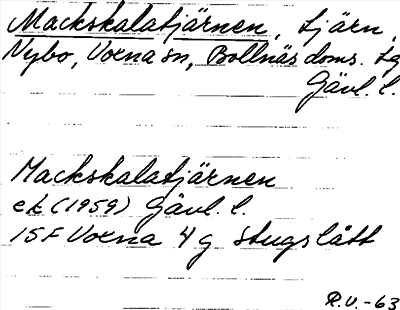 Mackskalatjärnen, tjärn,
Nybo, Voxna sn, Bollnäs doms. tg
Gävl. l.
Mackskalatjärnen
ek (1959) Gävl. l.
15F Voxna 4 g Stugslått
R.U.-63